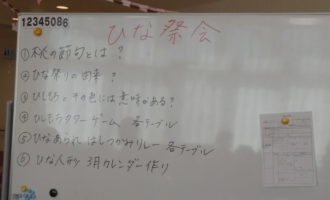 12345086
ひな祭会
①桃の節句とは？
②ひな祭りの由来？
③ひしもちとその色には意味がある？
④ひしもちタワーゲーム 各テーブル
⑤ひなあられ はしつかみリレー 各テーブル
⑥ひな人形 3月カレンダー作り